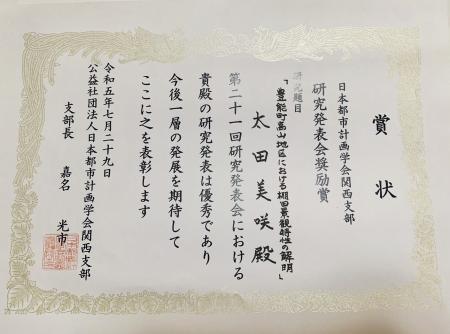 賞状
日本都市計画学会関西支部
研究発表会奨励賞
研究題目
「豊能町高山地区における棚田景観特性の解明」
太田美咲殿
第二十一回研究発表会における
貴殿の研究発表は優秀であり
今後一層の発展を期待して
ここに之を表彰します
令和五年七月二十九日
公益社団法人日本都市計画学会関西支部
支部長 嘉名光市